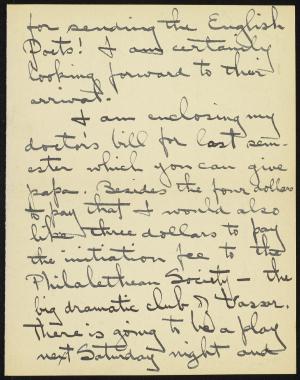 for sending the English
Poets! I am certainly
looking forward to their
arrival.
I am enclosing my
doctor's bill for last sem-
ester which you can give
papa. Besides the four dollars
to pay that I would also
like three dollars to pay
the initiation fee to the
Philalethean Society – the
big dramatic club of Vassar.
There is going to be a play
next Saturday night and